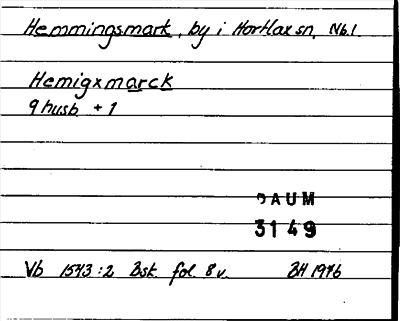 Hemmingsmark, by i Hortlax sn, Nb.l
Hemigxmarck
9 husb + 1
DAUM
3149
Vb 1543:2 Bsk. fol. 8 v. BH 1946